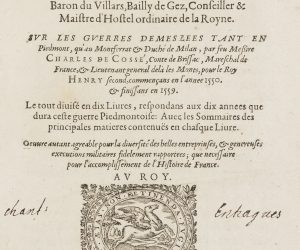 Baron du Villars, Bailly de Gez, Conseiller &
Maistre d'Hostel ordinaire de la Royne.
SVR LES GVERRES DEMESLEES TANT EN
Piedmont, qu'au Montferrat & Duché de Milan, par feu Messire
CHARLES DE COSSÉ, Conte de Brissac, Mareschal de
France, & Lieutenant general delà les Monts, pour le Roy
HENRY second, commençans en l'année 1550.
& finissans en 1559.
Le tout diuisé en dix Liures, respondans aux dix années que
dura ceste guerre Piedmontoise: Auec les Sommaires des
principales matieres contenuës en chasque Liure.
Oeuure autant agreable pour la diuersité des belles entreprinses, & genereuses
executions militaires fidelement rapportees; que necessaire
pour l'accomplissement de l'Histoire de France.
AV ROY.
chant. Entragues